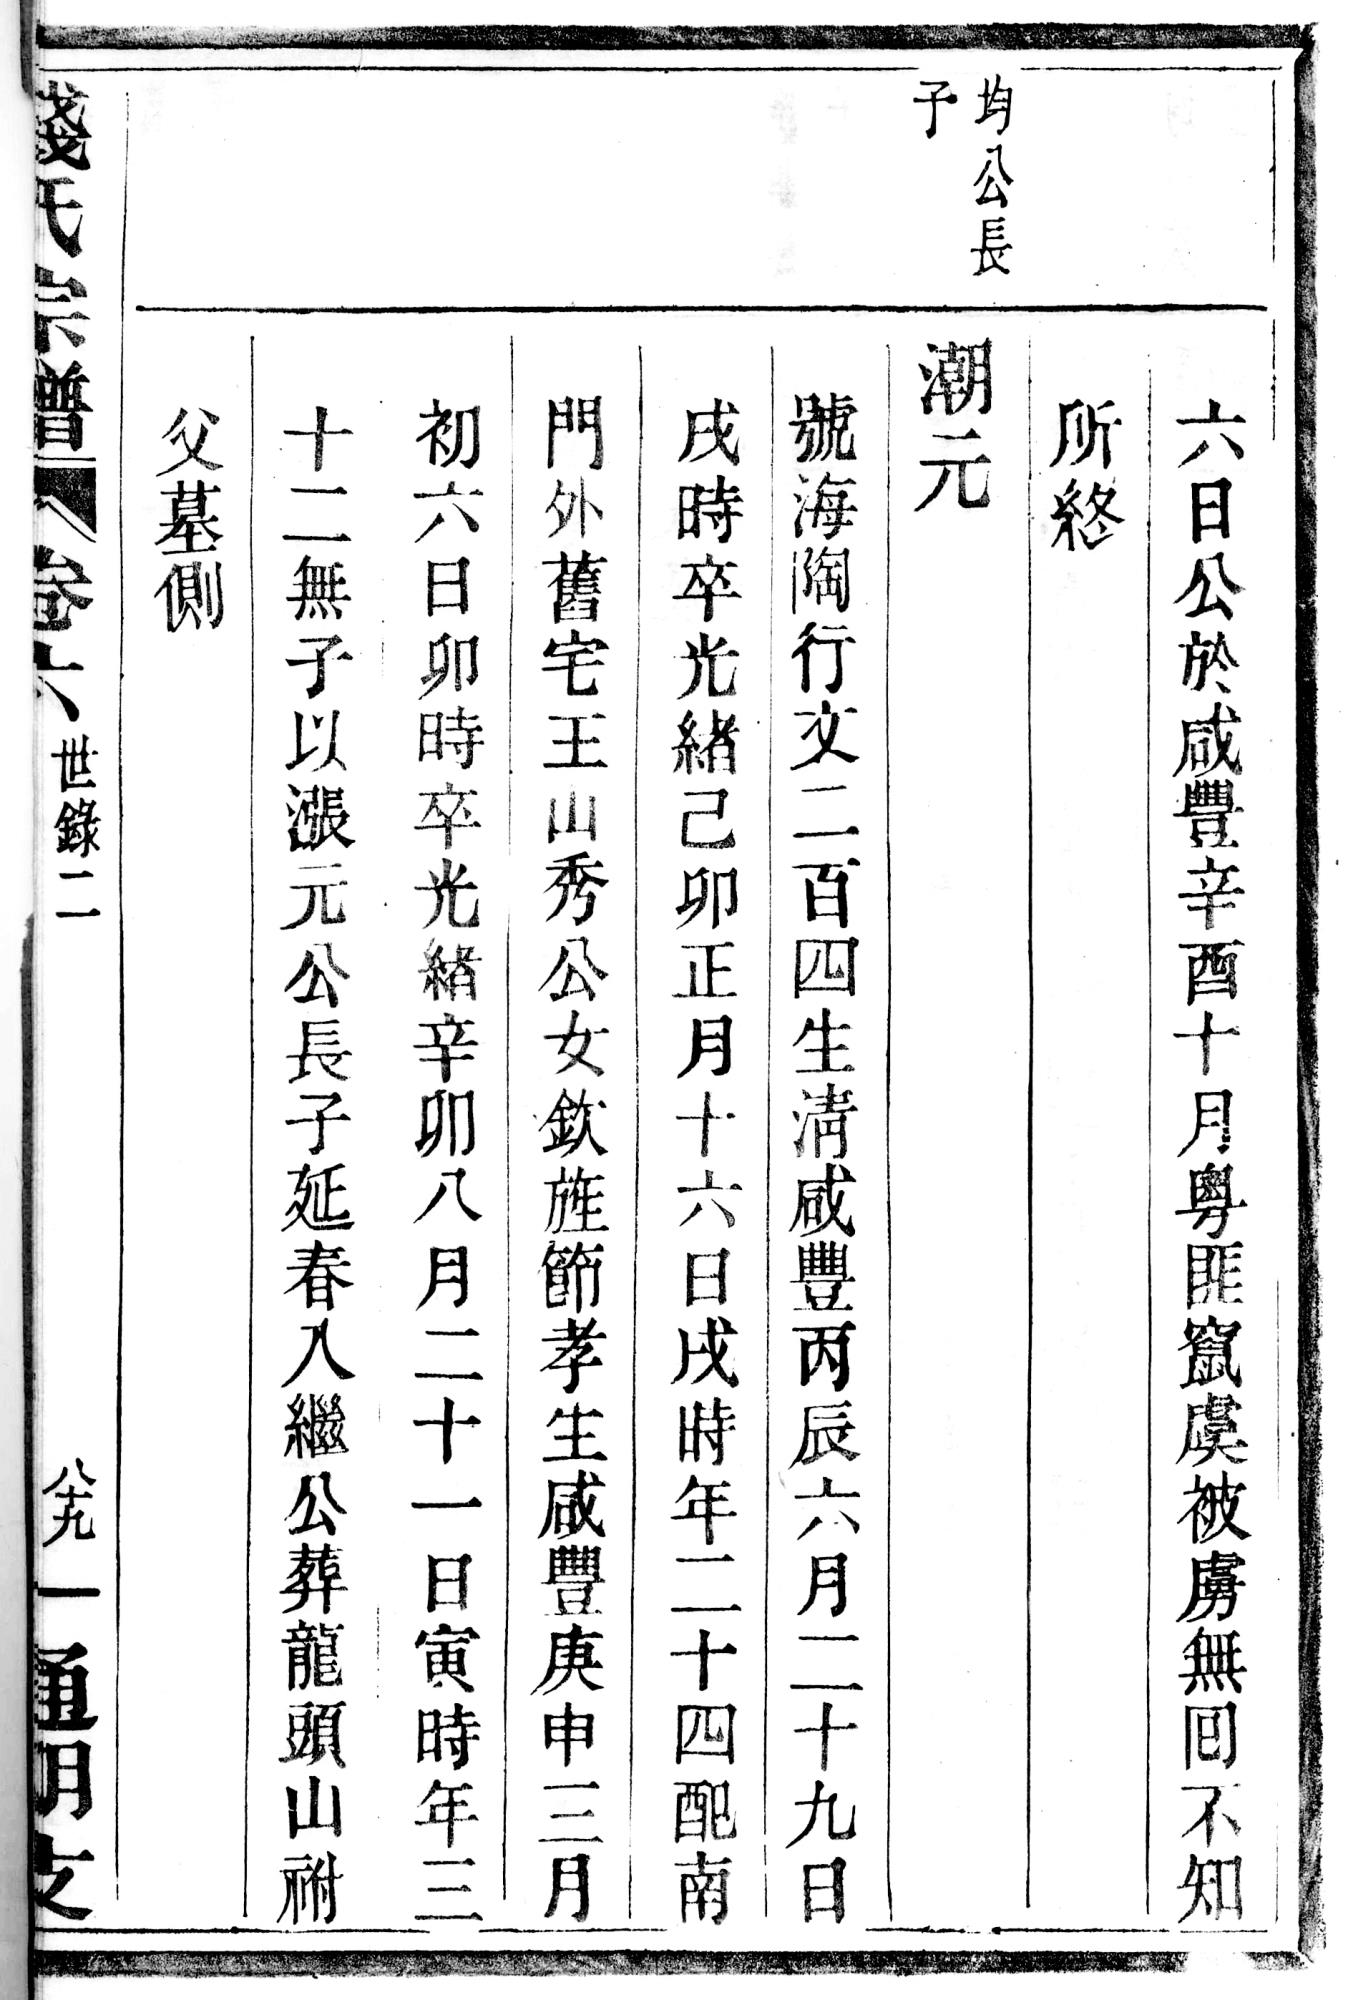 六日公於咸豐辛酉十月粤匪竄虞被虜無回不知
所終
均公長
子
潮元
號海陶行文二百四生淸咸豐丙辰六月二十九日
戌時卒光緒己卯正月十六日戌時年二十四配南
門外舊宅王山秀公女欽旌節孝生咸豐庚申三月
初六日卯時卒光緒辛卯八月二十一日寅時年三
十二無子以漲元公長子延春入繼公葬龍頭山祔
父墓側
錢氏宗譜 卷六 世錄二 八十九 通明支